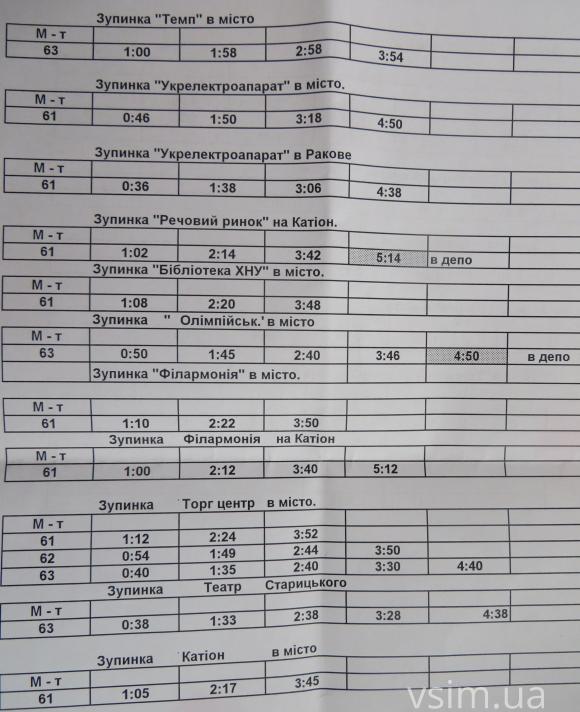 Зупинка "Темп" в місто
М - т
63 1:00 1:58 2:58 3:54
Зупинка "Укрелектроапарат" в місто.
М - т
61 0:46 1:50 3:18 4:50
Зупинка "Укрелектроапарат" в Ракове
М - т
61 0:36 1:38 3:06 4:38
Зупинка "Речовий ринок" на Катіон.
М - т
61 1:02 2:14 3:42 5:14 в депо
Зупинка "Бібліотека ХНУ" в місто.
М - т
61 1:08 2:20 3:48
Зупинка " Олімпійськ.' в місто
М - т
63 0:50 1:45 2:40 3:46 4:50 в депо
Зупинка "Філармонія" в місто.
М - т
61 1:10 2:22 3:50
Зупинка Філармонія на Катіон
М - т
61 1:00 2:12 3:40 5:12
Зупинка Торг центр в місто.
М - т
61 1:12 2:24 3:52
62 0:54 1:49 2:44 3:50
63 0:40 1:35 2:40 3:30 4:40
Зупинка Театр Старицького
М - т
63 0:38 1:33 2:38 3:28 4:38
Зупинка Катіон в місто
М - т
61 1:05 2:17 3:45
vsim.ua